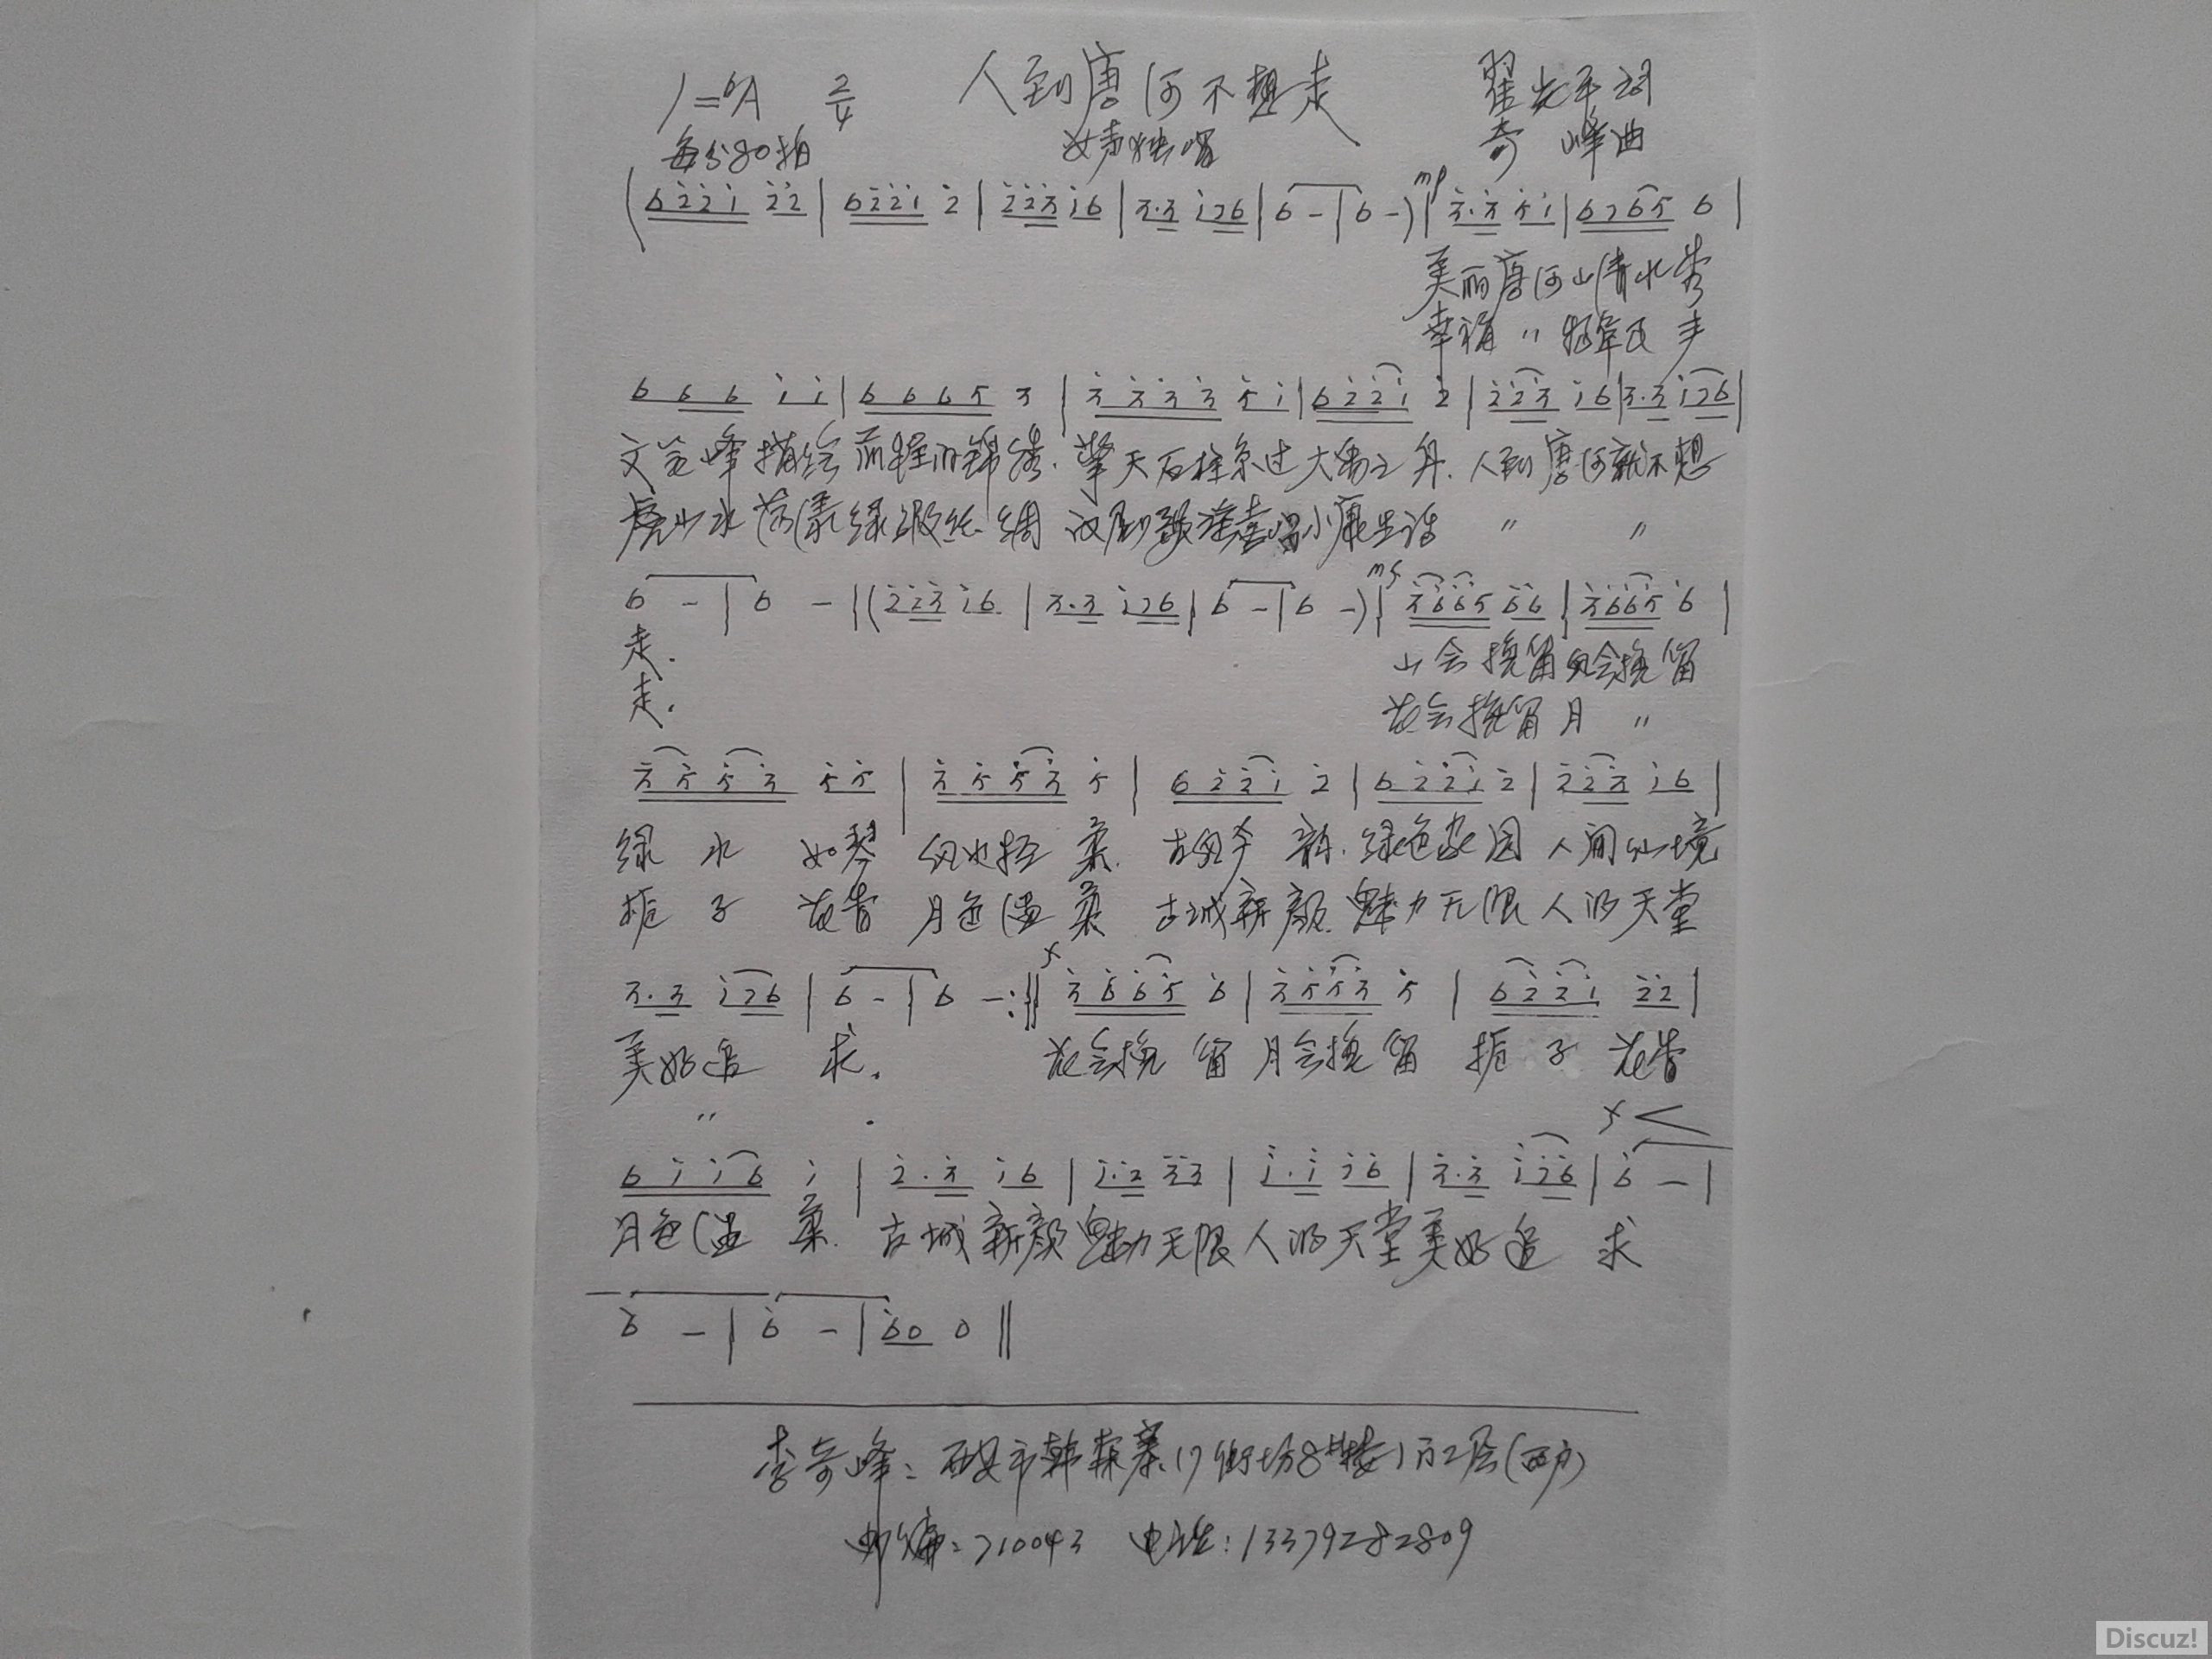 1=♭A 2/4 人到唐河不想走 翟光平词
每分80拍 女声独唱 奇峰曲
(6221 22|6221 2|223 16|3.3 176|6-|6-)|mp 3.3 51|6765 6|
美丽唐河山清水秀
幸福〃 携
666 11|6665 3|3333 51|6221 2|223 16|3.3 176|
文笔峰描绘前程的锦绣.擎天石柱 过大禹之舟.人到唐河就不想
虎山水荡漾绿缎丝绸 喜唱小康 〃 〃
6-|6-|(223 16|3.3 176|6-|6-)|mf 3665 66|3665 6|
走.
走.
山会挽留风会挽留
花会挽留月〃
3553 55|3553 5|6221 2|6221 2|223 16|
绿水如琴风也轻柔.古 新.绿色家园人间仙境
栀子花香月色温柔 古城新颜.魅力无限人的天堂
3.3 176|6-|6-:‖f 3665 6|3553 5|6221 22|
美好追求. 花会挽留月会挽留栀子花香
〃 . f<
6116 1|2.3 16|1.2 33|1.1 16|3.3 176|6-|
月色温柔.古城新颜魅力无限人的天堂美好追求
6-|6-|60 0‖
李奇峰:西安市韩森寨17街坊8#楼1门2层(西户)
邮编:710043 电话:13379282809
Discuz!